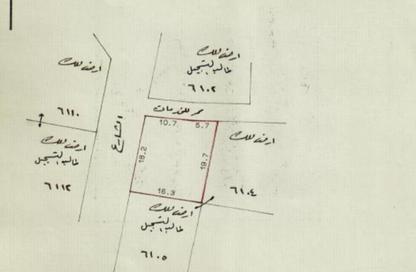 ارض للملك
طالب التسجيل
٦١٠٢
ارض للملك
ممر للخدمات
٦١١٠
الشارع
10.7
5.7
ارض للملك
ارض للملك
طالب التسجيل
18.2
19.7
٦١١٢
16.3
٦١٠٤
ارض للملك
طالب التسجيل
٦١٠٥